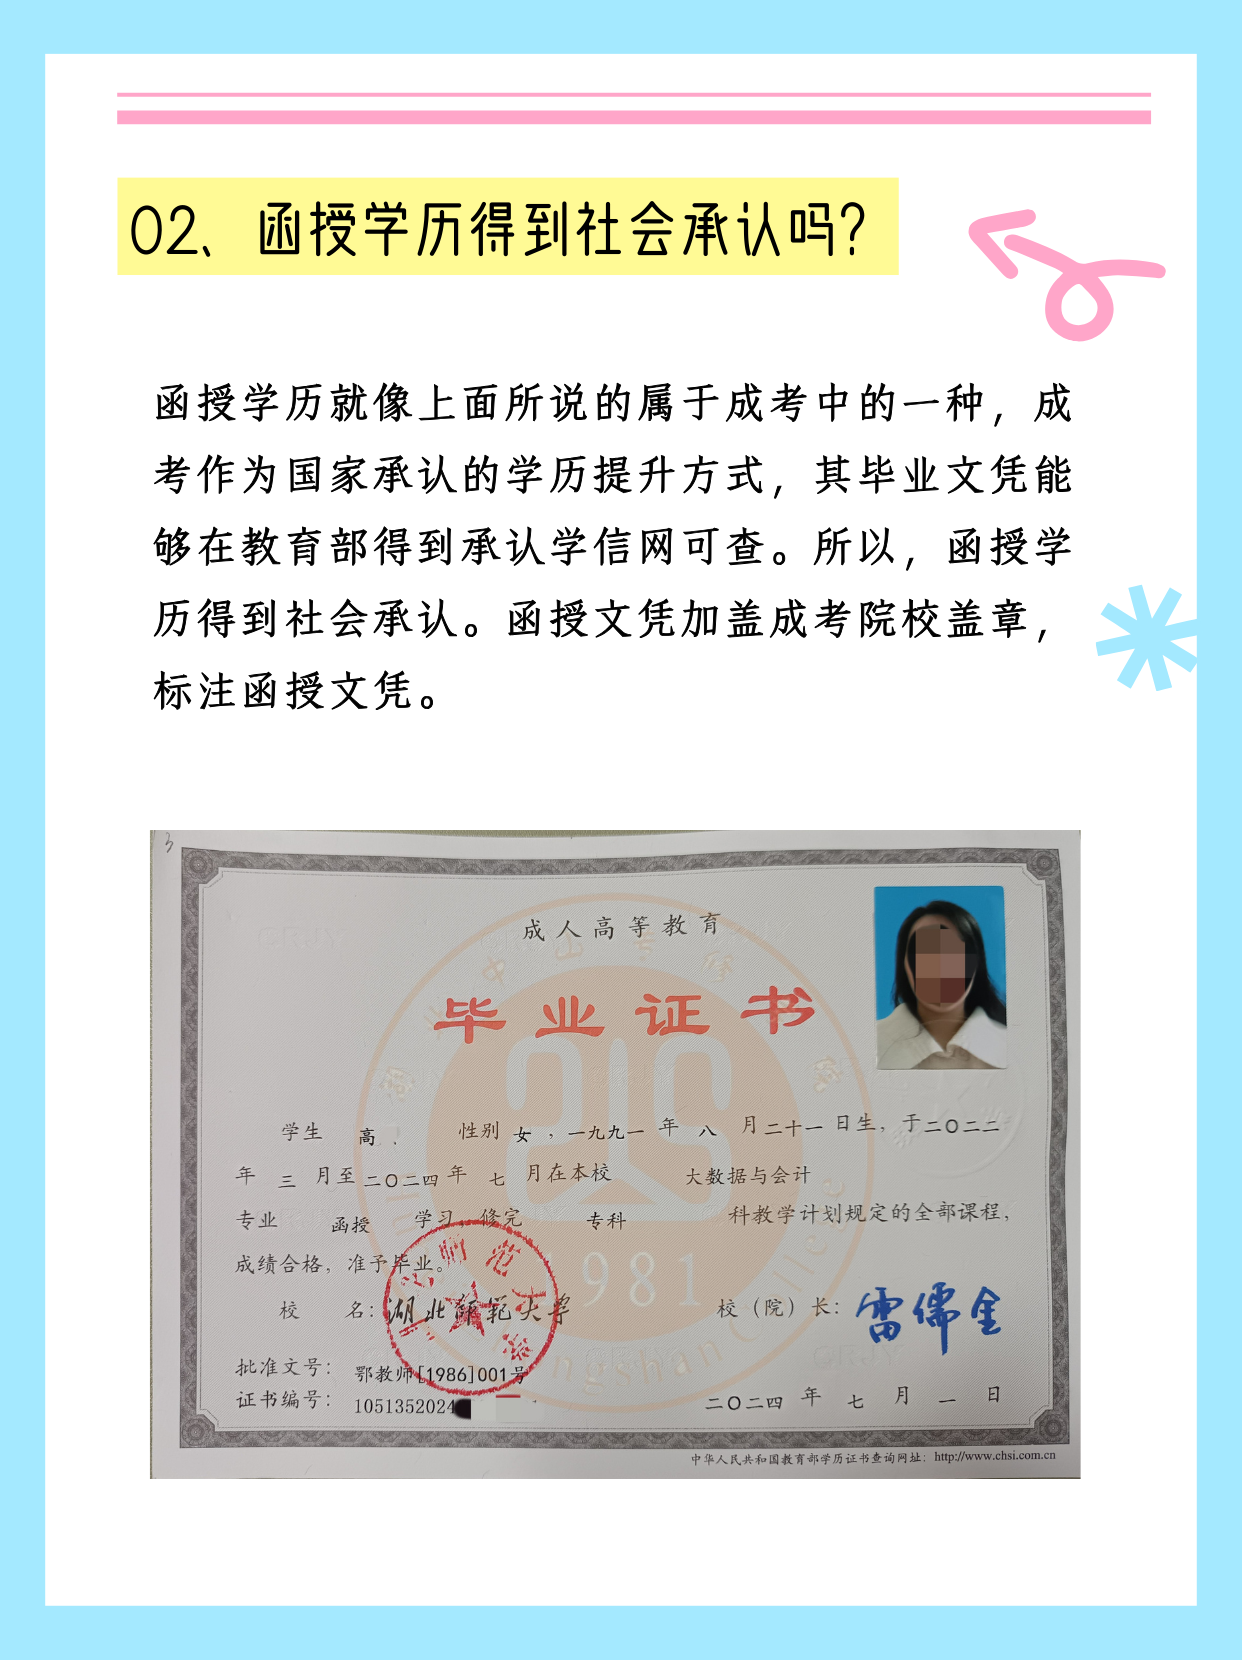 02、函授学历得到社会承认吗?
函授学历就像上面所说的属于成考中的一种，成
考作为国家承认的学历提升方式，其毕业文凭能
够在教育部得到承认学信网可查。所以，函授学
历得到社会承认。函授文凭加盖成考院校盖章，
标注函授文凭。
成人高等教育
毕业证书
学生 高 性别 女 ，一九九一 年 八 月二十一日生，于二〇二二
年 三 月至二〇二四年 七 月在本校 大数据与会计
专业 函授 学习，修完 专科 科教学计划规定的全部课程，
成绩合格，准予毕业。
校 名：湖北师范大学 校（院）长：雷儒金
批准文号： 鄂教师[1986]001号
证书编号： 1051352024 二〇二四 年 七 月 一 日
中华人民共和国教育部学历证书查询网址：http://www.chsi.com.cn
1981